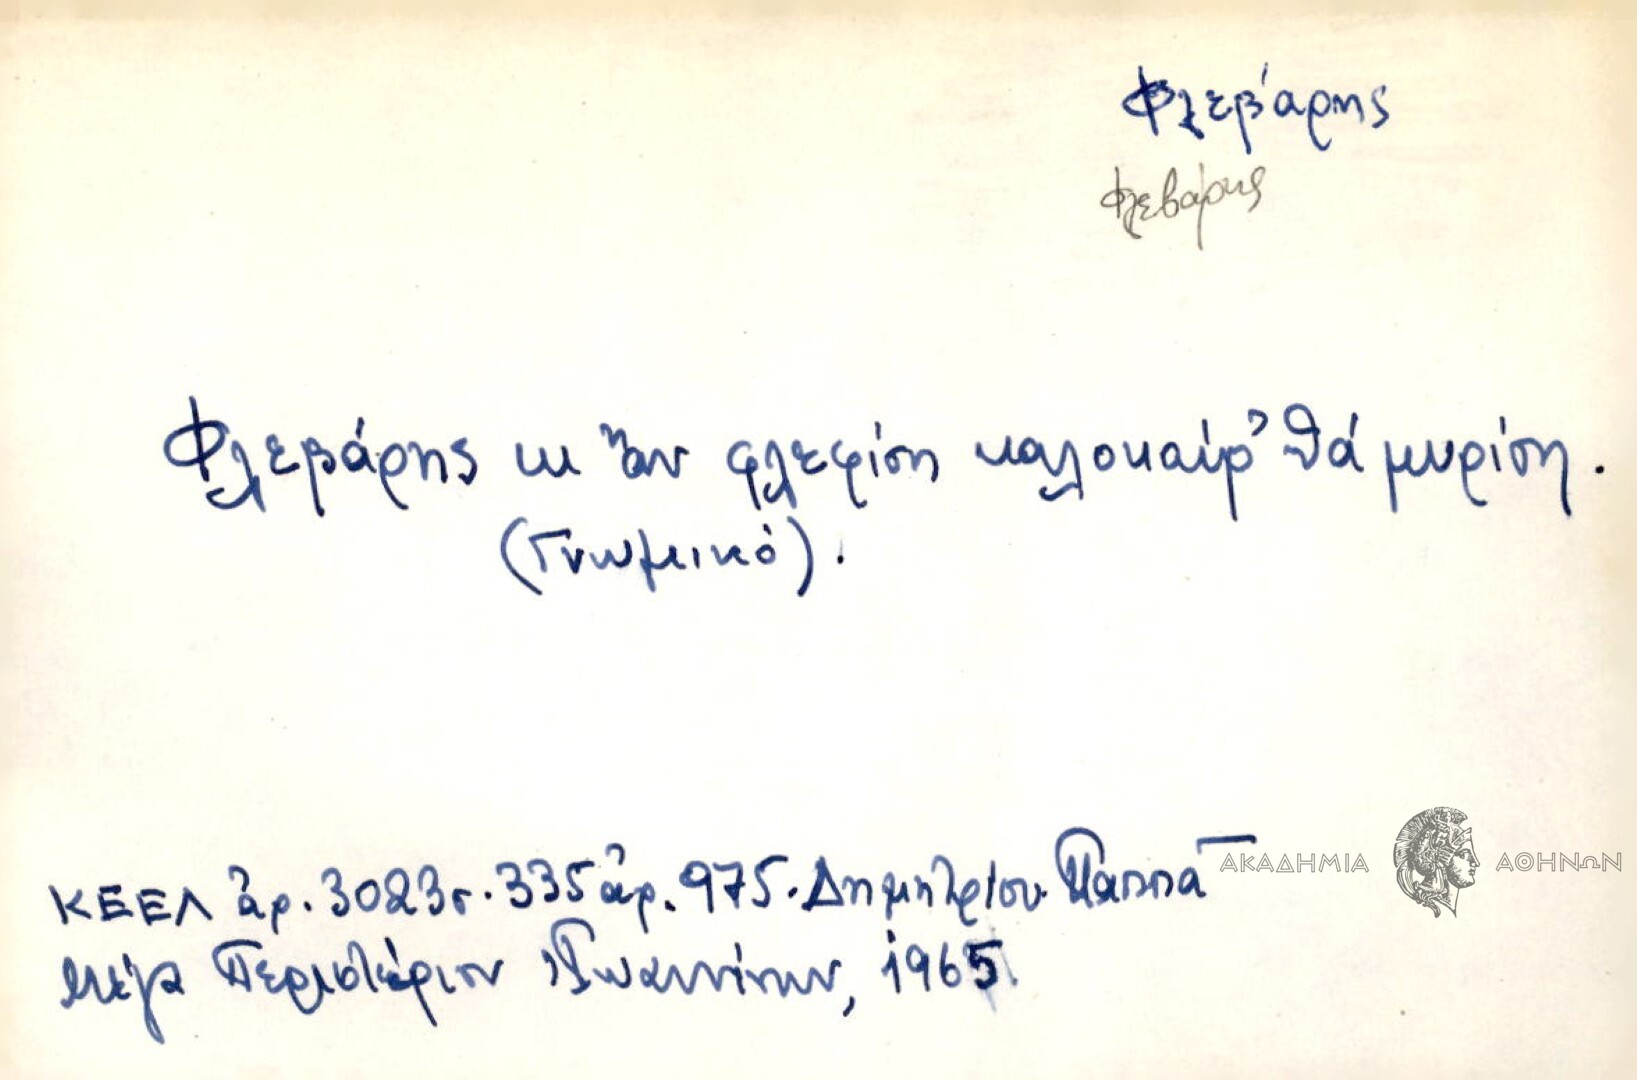 Φλεβάρης
Φλεβάρης
Φλεβάρης κι ἄν φλεφίση καλοκαίρ' θά μυρίση.
(Γνωμικό).
ΚΕΕΛ ἀρ. 3023 σ. 335 ἀρ. 975. Δημητρίου Παππᾶ
ΑΚΑΔΗΜΙΑ ΑΘΗΝΩΝ
Μέγα Περιστέριον Ἰωαννίνων, 1965.